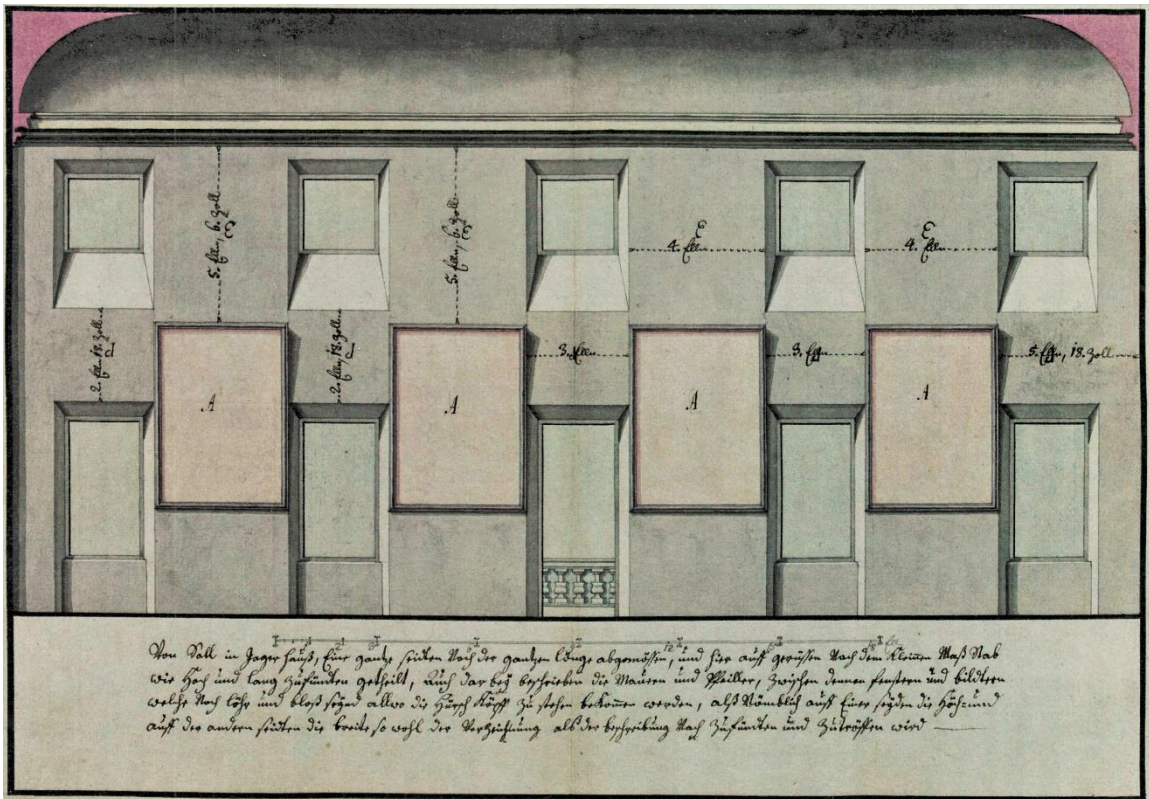 5. Elln, 6. Zoll
5. Elln, 6. Zoll
E
4. Elln
E
4. Elln
2. Elln 18. Zoll
2. Elln 18. Zoll
3. Elln
3. Elln
5. Elln, 18. Zoll
A
A
A
A
Von Sall in Jager Hauß, Eine gantze seiden Nach der gantzen länge abgemössen, und hier auff gerissen Nach dem Kleinen Maß Stab
wie Hoch und lang Zufünden getheilt, Auch dar beÿ beschrieben die Mauren und Pfeiller, Zwischen dennen fenstern und bildtern
welche Noch löhr und bloß seÿnd allwo die Hürsch Köpff Zu stehen bekomen werden, alß Nömblich auff Einer seÿden die Höh und
auff der andern seiden die breite so wohl der Verzeichnung als der beschreibung Nach Zufünden und Zutröffen wird